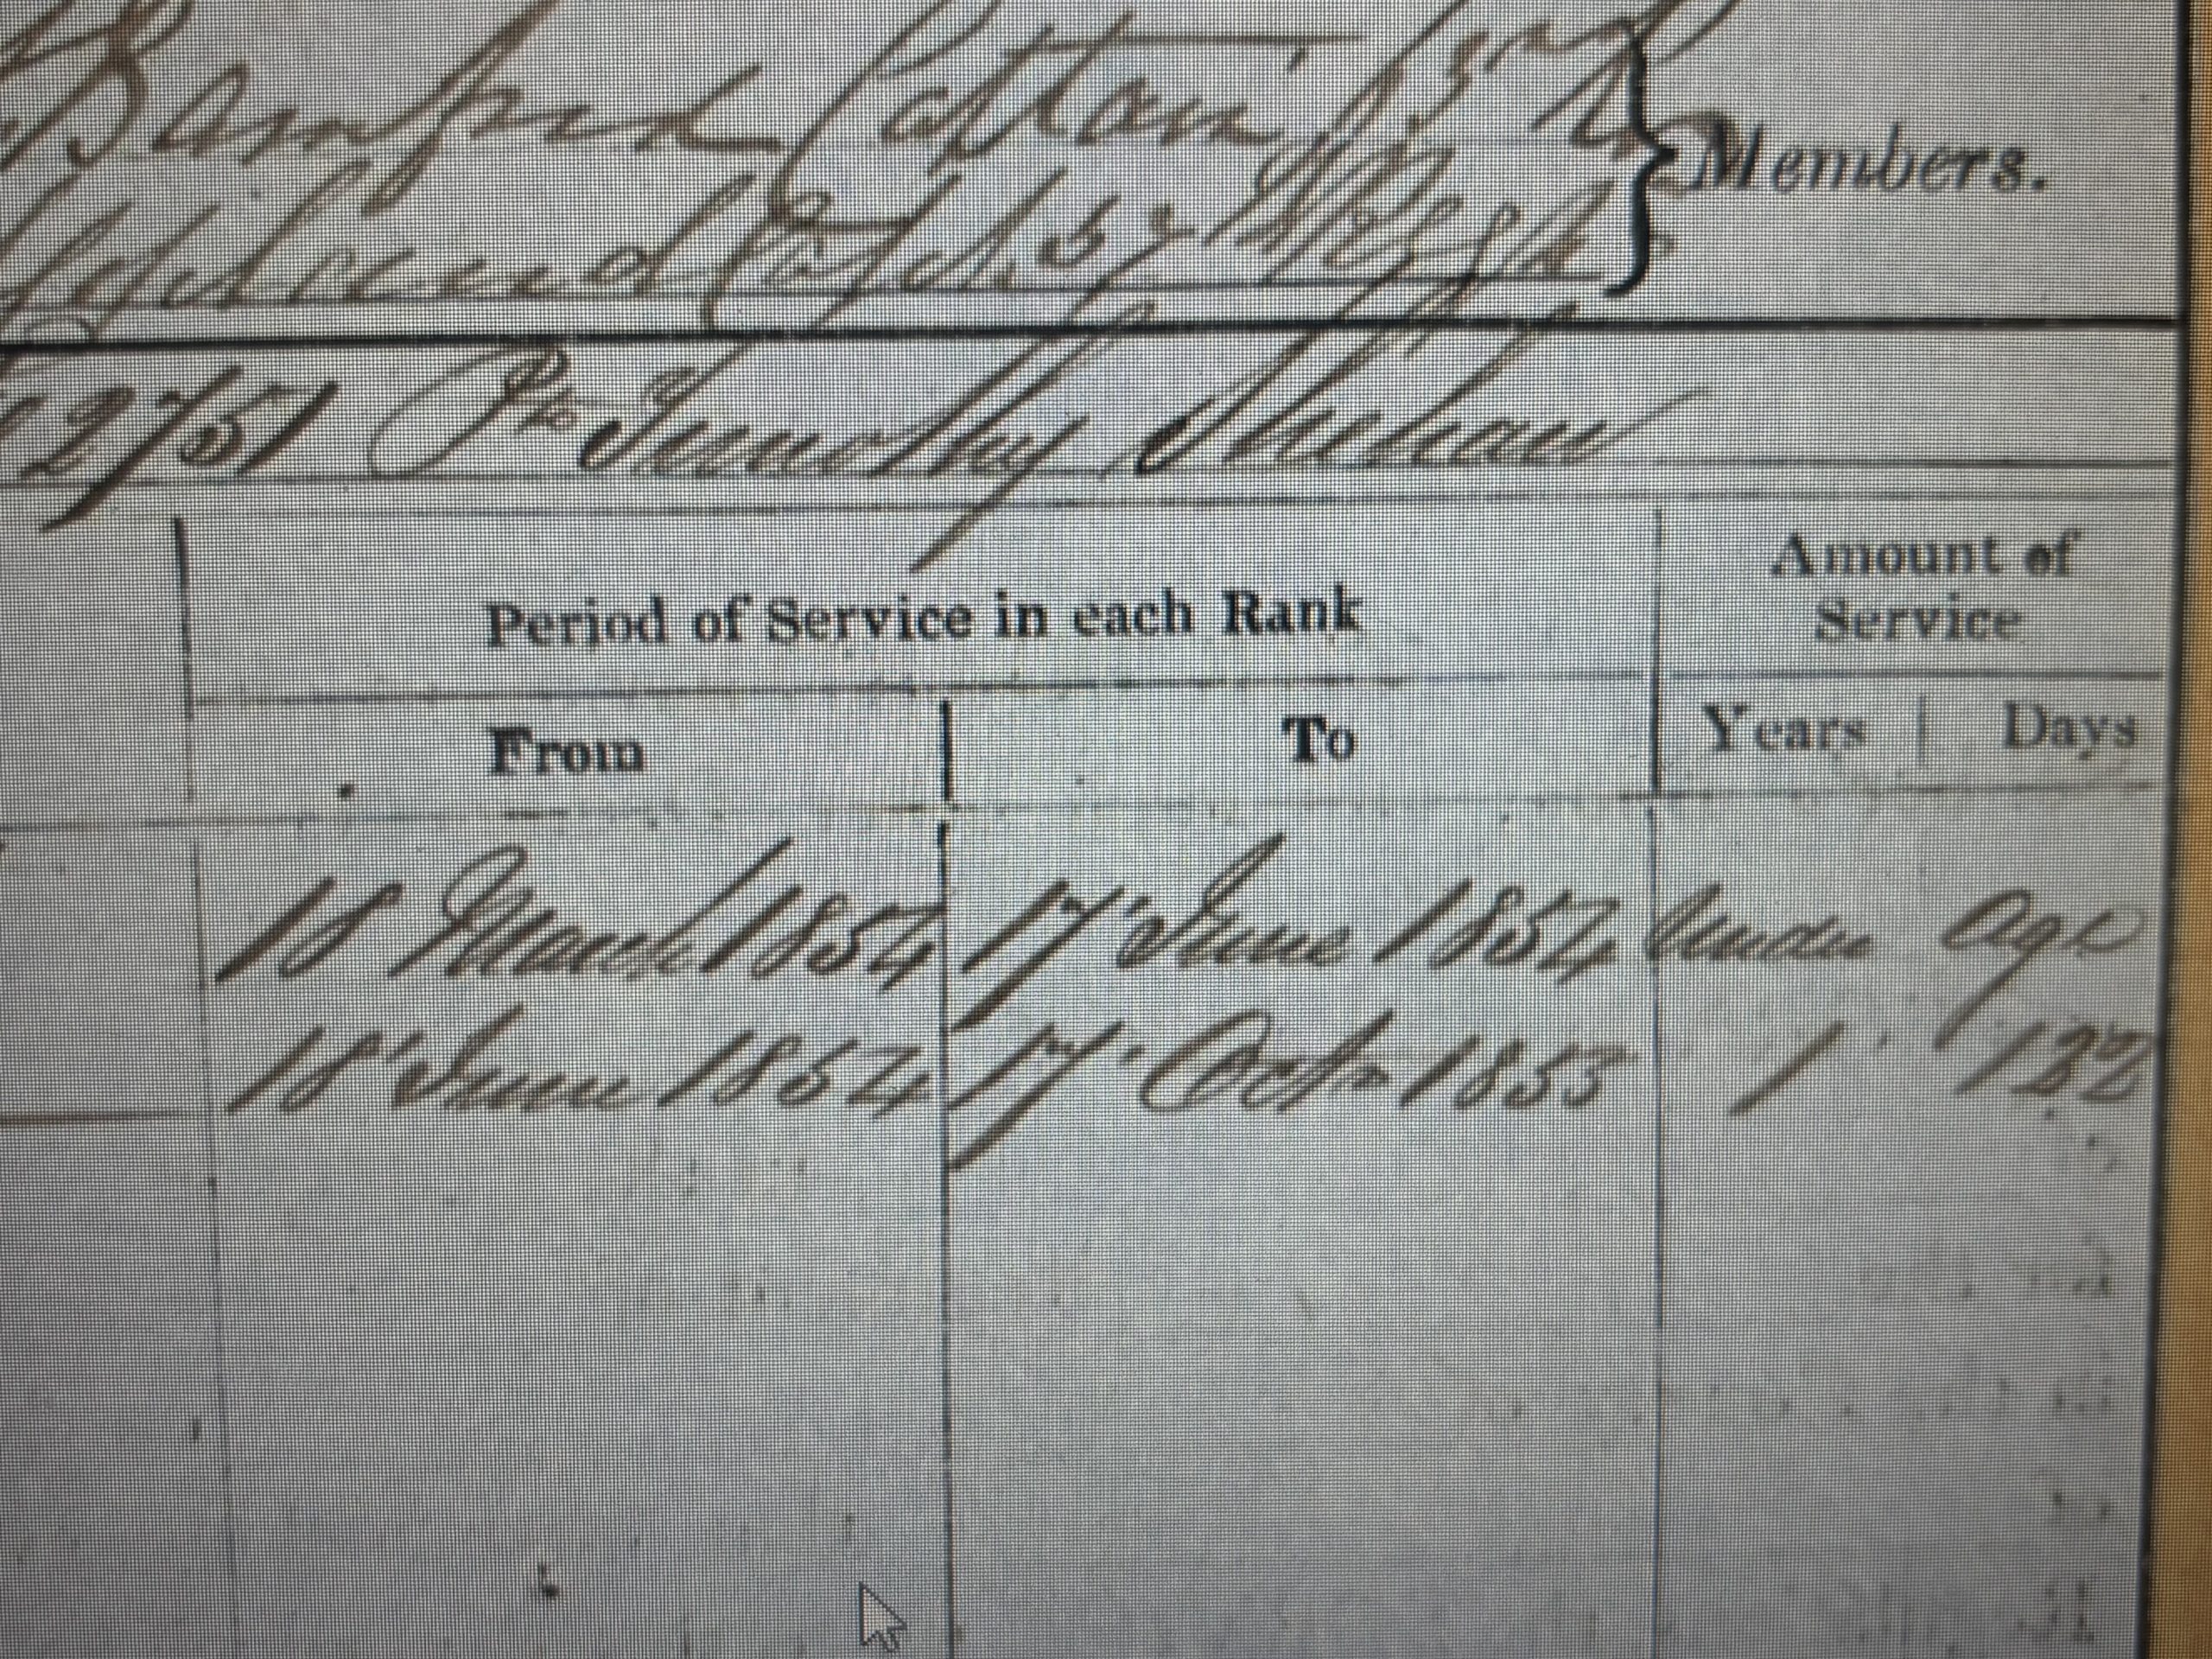 Captain 63rd
Members.
2751 Pte Timothy Shehan
Period of Service in each Rank
Amount of Service
From
To
Years
Days
18 March 1854
17 June 1854
Under age
18 June 1854
17 Octr 1855
1
122